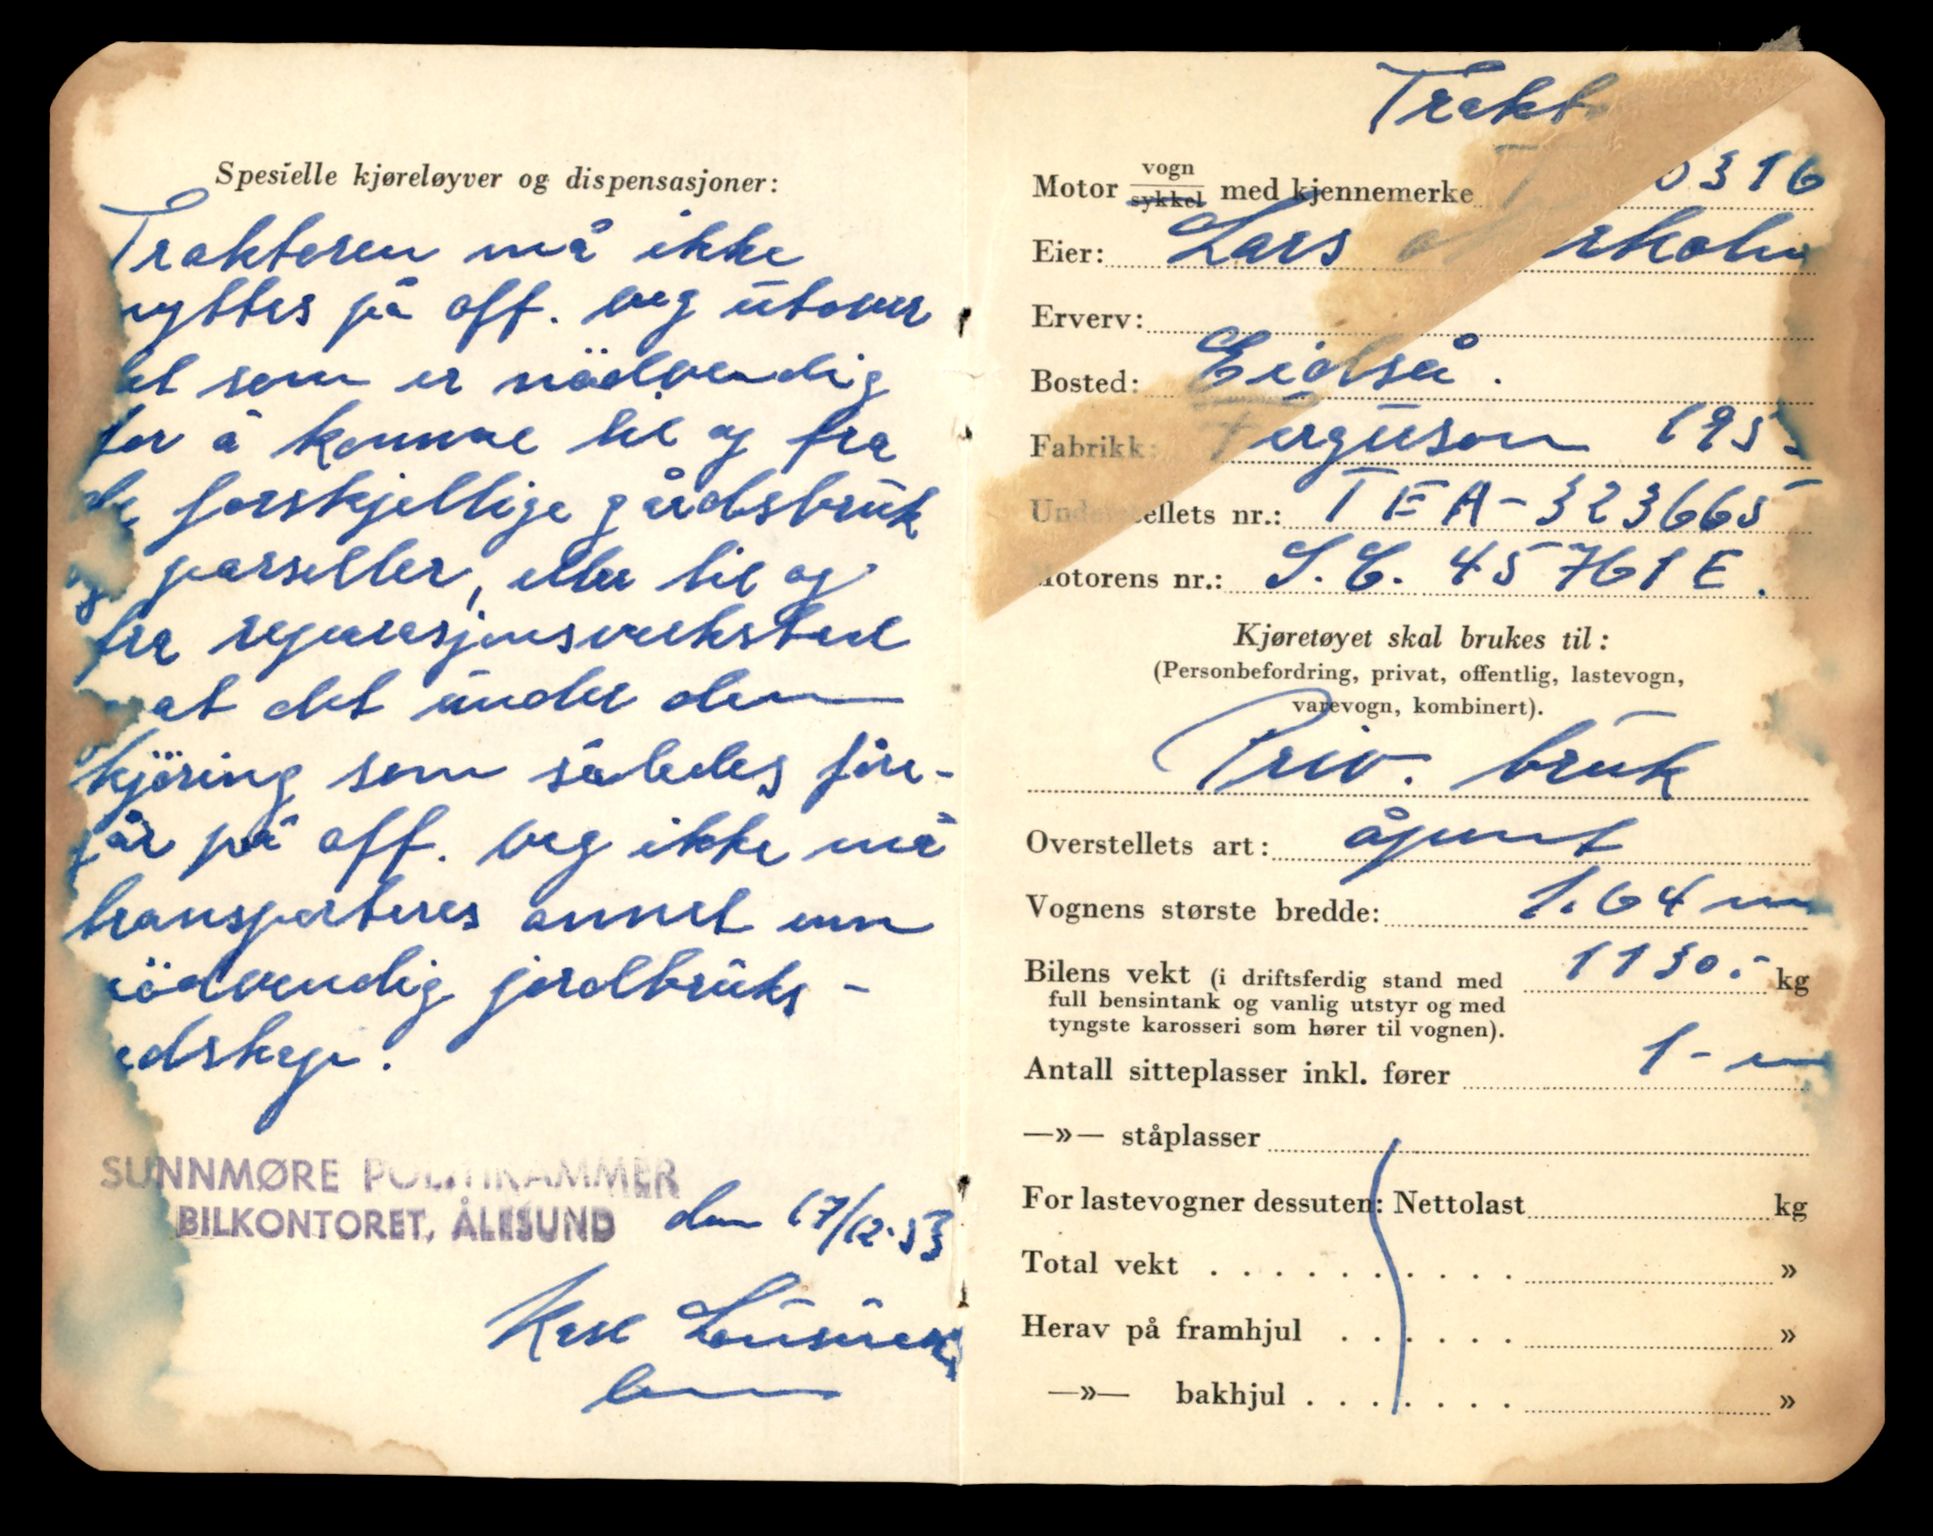 Spesielle kjøreløyver og dispensasjoner:
Traktoren må ikke
nyttes på off. veg utover
det som er nödvendig
for å komme til og fra
de forskjellige gårdsbruk
og parseller, eller til og
fra reparasjonsverksted
at det under den
kjöring som således fore-
går på off. veg ikke må
transporteres annet enn
nödvendig jordbruks-
redskap.
SUNNMØRE POLITIKAMMER
BILKONTORET, ÅLESUND den 17/12-53
Trakt
Motor vogn sykkel med kjennemerke 0316
Eier: Lars
Erverv:
Bosted: Eidså.
Fabrikk: Ferguson 195
Understellets nr.: TEA-323665
Motorens nr.: S.C. 45761E.
Kjøretøyet skal brukes til:
(Personbefordring, privat, offentlig, lastevogn,
varevogn, kombinert).
Priv. bruk
Overstellets art: åpent
Vognens største bredde: 1.64 m
Bilens vekt (i driftsferdig stand med 1130.- kg
full bensintank og vanlig utstyr og med
tyngste karosseri som hører til vognen).
Antall sitteplasser inkl. fører 1-en
—»— ståplasser
For lastevogner dessuten: Nettolast kg
Total vekt . . . . . . . . . . »
Herav på framhjul . . . . . . »
—»— bakhjul . . . . . . . »